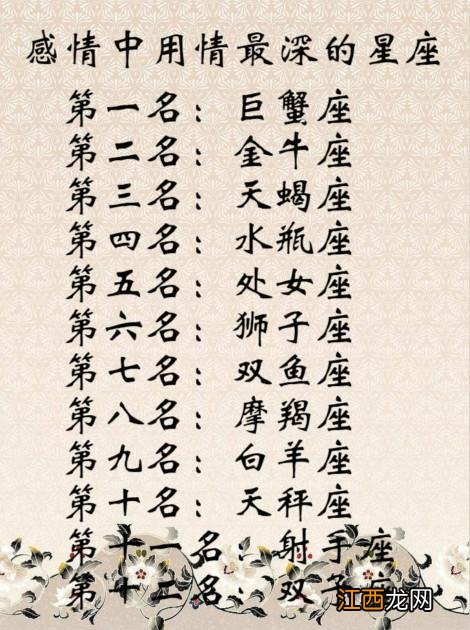 感情中用情最深的星座
第一名：巨蟹座
第二名：金牛座
第三名：天蝎座
第四名：水瓶座
第五名：处女座
第六名：狮子座
第七名：双鱼座
第八名：摩羯座
第九名：白羊座
第十名：天秤座
第十一名：射手座
第十二名：双子座
江西龙网